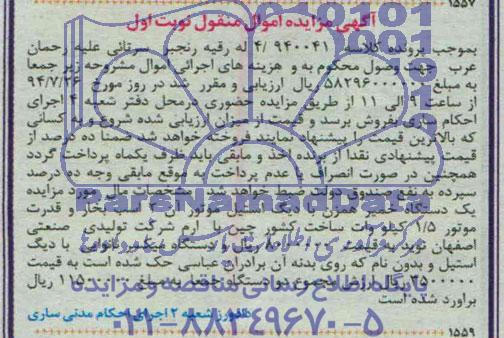 ۱۵۵۷
آگهی مزایده اموال منقول نوبت اول
بموجب پرونده کلاسه ۹۴۰۰۴۱/ ۴ له رقیه رنجبر سرتائی علیه رحمان
عرب جهت وصول محکوم به و هزینه های اجرائی اموال مشروحه زیر جمعا
به مبلغ ریال ارزیابی و مقرر شد در روز مورخ ۹۴/۷/۲۶
از ساعت ۹ الی ۱۱ از طریق مزایده حضوری درمحل دفتر شعبه ۴ اجرای
احکام ساری بفروش برسد و قیمت از میزان ارزیابی شده شروع و به کسانی
که بالاترین قیمت را پیشنهاد نمایند فروخته خواهد شد ضمنا ده درصد از
قیمت پیشنهادی نقدا از برنده اخذ و مابقی باید ظرف یکماه پرداخت گردد
همچنین در صورت انصراف یا عدم پرداخت به موقع مابقی وجه ده درصد
سپرده به نفع صندوق دولت ضبط خواهد شد مشخصات مال مورد مزایده
یک دستگاه خمیر همزن با دیگ استیل موتور آن اسب بخار و قدرت
موتور ۱/۵ کیلو وات ساخت کشور چین با آرم شرکت تولیدی صنعتی
اصفهان نوید به قیمت ریال و دستگاه میکسر نانوایی با دیگ
استیل و بدون نام که روی بدنه آن برادران عباسی حک شده است به قیمت
ریال مجموع دو دستگاه به مبلغ ریال
برآورد شده است
دادورز شعبه ۲ اجرای احکام مدنی ساری
۱۵۵۹
ParsNamadData
پایگاه اطلاع رسانی مناقصه و مزایده
۰۲۱-۸۸۳۴۹۶۷۰-۵